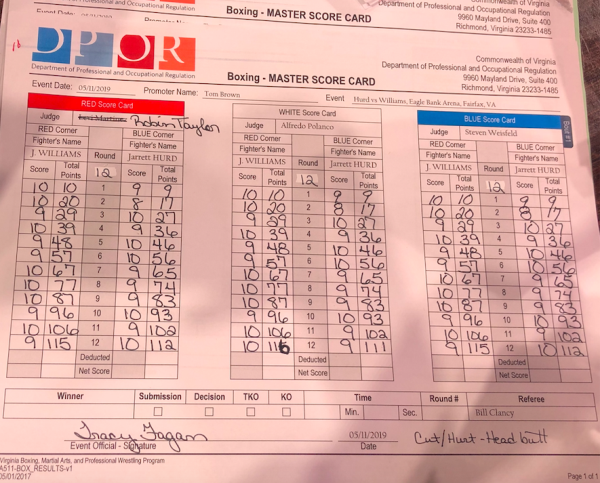 Department of Professional and Occupational Regulation
Commonwealth of Virginia
Department of Professional and Occupational Regulation
9960 Mayland Drive, Suite 400
Richmond, Virginia 23233-1485
Boxing - MASTER SCORE CARD
DPOR
Department of Professional and Occupational Regulation
Boxing - MASTER SCORE CARD
Commonwealth of Virginia
Department of Professional and Occupational Regulation
9960 Mayland Drive, Suite 400
Richmond, Virginia 23233-1485
Event Date: 05/11/2019 Promoter Name: Tom Brown Event Hurd vs Williams, Eagle Bank Arena, Fairfax, VA
RED Score Card WHITE Score Card BLUE Score Card
Judge Robin Taylor Judge Alfredo Polanco Judge Steven Weisfeld
RED Corner BLUE Corner RED Corner BLUE Corner RED Corner BLUE Corner
Fighter's Name Fighter's Name Fighter's Name Fighter's Name Fighter's Name Fighter's Name
J. WILLIAMS Round Jarrett HURD J. WILLIAMS Round Jarrett HURD J. WILLIAMS Round Jarrett HURD
Score Total Points 12 Score Total Points Score Total Points 12 Score Total Points Score Total Points 12 Score Total Points
10 10 1 9 9 10 10 1 9 9 10 10 1 9 9
10 20 2 8 17 10 20 2 8 17 10 20 2 8 17
9 29 3 10 27 9 29 3 10 27 9 29 3 10 27
10 39 4 9 36 10 39 4 9 36 10 39 4 9 36
9 48 5 10 46 9 48 5 10 46 9 48 5 10 46
9 57 6 10 56 9 57 6 10 56 9 57 6 10 56
10 67 7 9 65 10 67 7 9 65 10 67 7 9 65
10 77 8 9 74 10 77 8 9 74 10 77 8 9 74
10 87 9 9 83 10 87 9 9 83 10 87 9 9 83
9 96 10 10 93 9 96 10 10 93 9 96 10 10 93
10 106 11 9 102 10 106 11 9 102 10 106 11 9 102
9 115 12 10 112 10 116 12 9 111 9 115 12 10 112
Deducted Deducted Deducted
Net Score Net Score Net Score
Winner Submission Decision TKO KO Time Round # Referee
Min. Sec. Bill Clancy
Tracy Fagan 05/11/2019 Cut/Hurt - Head butt
Event Official - Signature Date
Virginia Boxing, Martial Arts, and Professional Wrestling Program
A511-BOX_RESULTS-v1
05/01/2017 Page 1 of 1